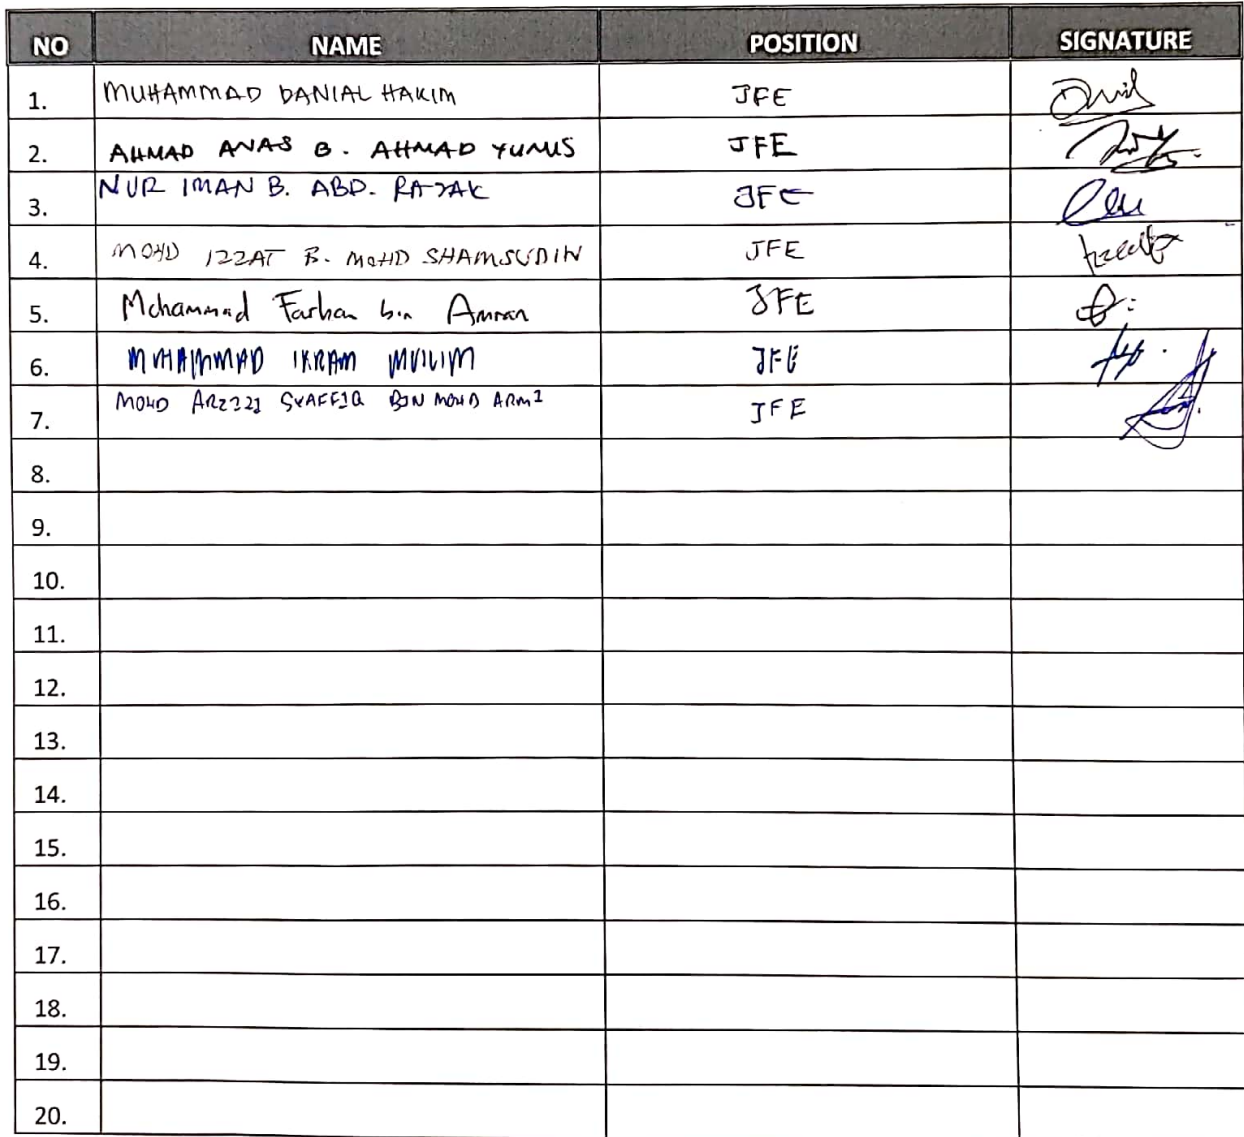 NO NAME POSITION SIGNATURE
1. MUHAMMAD DANIAL HAKIM JFE
2. AHMAD ANAS B. AHMAD YUNUS JFE
3. NUR IMAN B. ABD. RAZAK JFE
4. MOHD IZZAT B. MOHD SHAMSUDIN JFE
5. Mohammad Farhan bin Amran JFE
6. MUHAMMAD IKRAM JFE
7. MOHD SYAFFIQ BIN MOHD ARMI JFE
8.
9.
10.
11.
12.
13.
14.
15.
16.
17.
18.
19.
20.